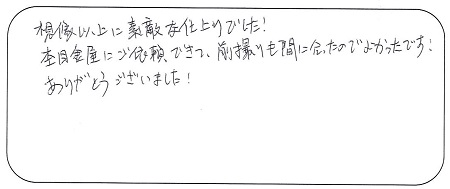 想像以上に素敵な仕上りでした!
本日金屋にご依頼できて、前撮りも間に合ったのでよかったです!
ありがとうございました!